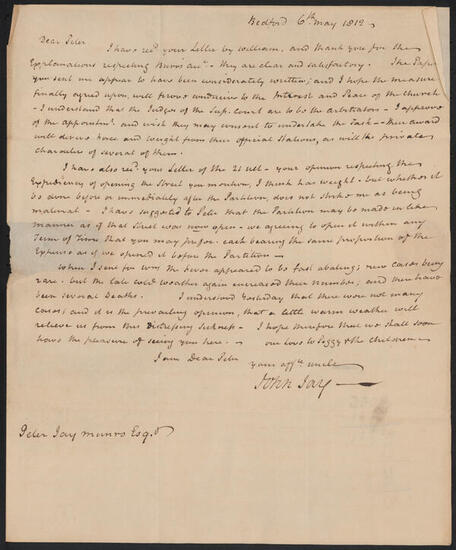 Bedford 6th may 1812
Dear Peter
I have recd. your Letter by William, and thank you for the
Explanations respecting Munro's acct. - they are clear and satisfactory. The Papers
you sent me appear to have been considerately written; and I hope the measure
finally agreed upon, will prove conducive to the Interest and Peace of the Church
- I understand that the Judges of the Sup. Court are to be the arbitrators - I approve
of the appointmt. and wish they may consent to undertake the Task - their award
will derive force and weight from their official Stations, as will the private
character of several of them.
I have also recd. your Letter of the 21 ult - your opinion respecting the
Expediency of opening the Street you mention, I think has weight - but whether it
be done before or immediately after the Partition, does not strike me as being
material - I have suggested to Peter that the Partition may be made in like
manner as if that Street was now open - we agreeing to open it within any
Term of Time that you may prefer. each bearing the same proportion of the
Expense as if we opened it before the Partition -
When I sent for Wm. the fever appeared to be fast abating; new cases being
rare. but the late cold Weather again increased their number; and there have
been several Deaths. I understood Yesterday that there were not many
cases; and it is the prevailing opinion, that a little warm weather will
relieve us from this distressing sickness - I hope therefore that we shall soon
have the pleasure of seeing you here. - our love to Peggy & the children -
I am Dear Peter
your affte. uncle
John Jay
Peter Jay Munro Esqr.